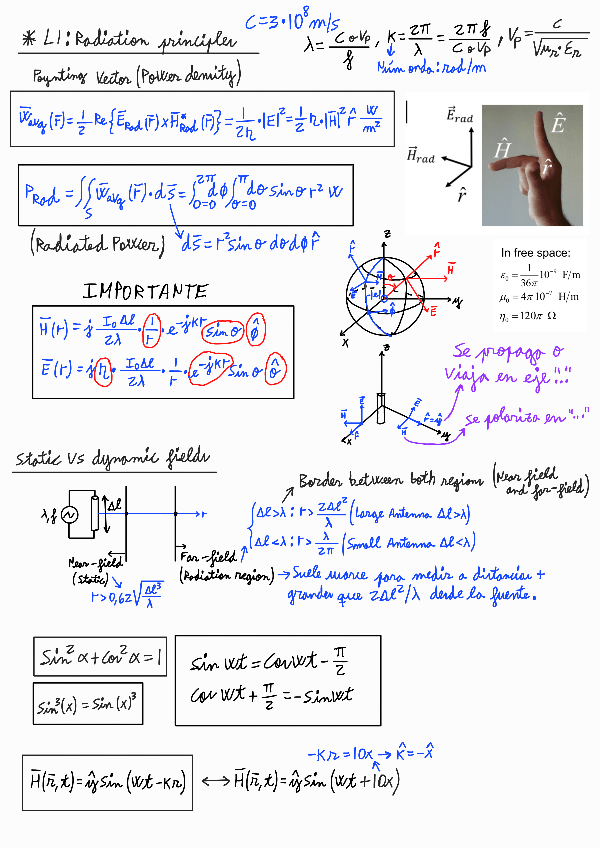 C=3·10⁸ m/s
* L1: Radiation principles
λ = C o Vp / f , K = 2π / λ = 2π f / C o Vp , Vp = C / √(μr · εr)
Núm onda: rad/m
Poynting Vector (Power density)
W̄avg(r̄) = 1/2 Re{Ērad(r̄) x H̄*Rad(r̄)} = 1/2η · |E|² = 1/2 η · |H̄|² r̂ W/m²
E⃗rad
H⃗rad
r̂
Ê
Ĥ
r̂
PRad = ∬S W̄avg(r̄) · ds̄ = ∫₀₌₀^2π dϕ ∫θ=0^π dθ sinθ r² W
(Radiated Power) ds̄ = r² sinθ dθ dϕ r̂
In free space:
ε₀ = 1/36π 10⁻⁹ F/m
μ₀ = 4π 10⁻⁷ H/m
η₀ = 120π Ω
IMPORTANTE
H̄(r) = j I₀Δl/2λ · 1/r · e^-jkr sinθ ϕ̂
Ē(r) = j η · I₀Δl/2λ · 1/r · e^-jkr sinθ θ̂
z
r̂
H̄
y
Ē
x
z
Ē
H̄
r̂
x
Ē
r̂=ŷ
H̄
y
Se propaga o
Viaja en eje "..."
Se polariza en "..."
Static Vs dynamic fields
Border between both regions (Near field
and far-field)
λ, f
Δl
r
Δl>λ: r> 2Δl²/λ (Large Antenna Δl>λ)
Δl<λ: r> λ/2π (Small Antenna Δl<λ)
Near-field
(Static)
r>0,62√(Δl³/λ)
Far-field
(Radiation region)
→ Suele usarse para medir a distancias +
grandes que 2Δl²/λ desde la fuente.
Sin² α + Cos² α = 1
Sin³(x) = Sin(x)³
Sin wt = Cos wt - π/2
Cos wt + π/2 = - Sin wt
-Kr = 10x → K̂ = -x̂
H̄(r̄,t) = ŷ Sin(wt - Kr) ↔ H̄(r̄,t) = ŷ Sin(wt + 10x)